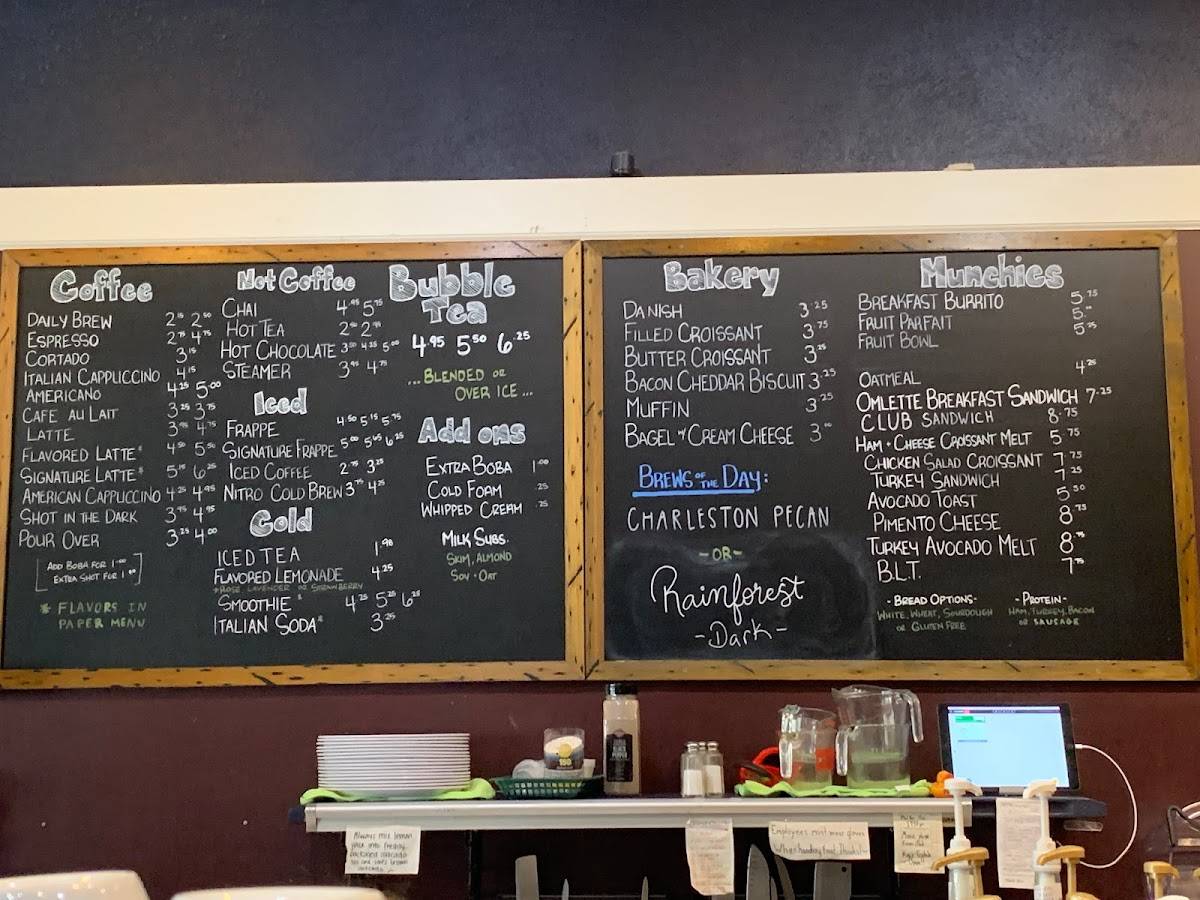 Coffee
DAILY BREW 2.15 2.50
ESPRESSO 2.75 4.75
CORTADO 3.15
ITALIAN CAPPUCCINO 4.15
AMERICANO 4.25 5.00
CAFE AU LAIT 3.25 3.75
LATTE 3.95 4.75
FLAVORED LATTE* 4.50 5.50
SIGNATURE LATTE* 5.15 6.25
AMERICAN CAPPUCCINO 4.25 4.95
SHOT IN THE DARK 3.95 4.95
POUR OVER 3.25 4.00
ADD BOBA FOR 1.00
EXTRA SHOT FOR 1.00
* FLAVORS IN
PAPER MENU
Not Coffee
CHAI 4.95 5.75
HOT TEA 2.50 2.75
HOT CHOCOLATE 3.50 4.25 5.00
STEAMER 3.95 4.75
Iced
FRAPPE 4.50 5.15 5.75
SIGNATURE FRAPPE 5.00 5.65 6.25
ICED COFFEE 2.75 3.25
NITRO COLD BREW 3.75 4.25
Cold
ICED TEA 1.90
FLAVORED LEMONADE 4.25
*ROSE, LAVENDER OR STRAWBERRY
SMOOTHIE* 4.25 5.25 6.25
ITALIAN SODA* 3.25
Bubble
Tea
4.95 5.50 6.25
...BLENDED OR
OVER ICE...
Add ons
EXTRA BOBA 1.00
COLD FOAM .25
WHIPPED CREAM .25
MILK SUBS.
SKIM, ALMOND
SOY • OAT
Bakery
DANISH 3.25
FILLED CROISSANT 3.75
BUTTER CROISSANT 3.25
BACON CHEDDAR BISCUIT 3.25
MUFFIN 3.25
BAGEL W/ CREAM CHEESE 3.00
BREWS OF THE DAY:
CHARLESTON PECAN
-OR-
Rainforest
-Dark-
Munchies
BREAKFAST BURRITO 5.75
FRUIT PARFAIT 5.00
FRUIT BOWL 5.25
OATMEAL 4.25
OMLETTE BREAKFAST SANDWICH 7.25
CLUB SANDWICH 8.75
HAM + CHEESE CROISSANT MELT 5.75
CHICKEN SALAD CROISSANT 7.75
TURKEY SANDWICH 7.25
AVOCADO TOAST 5.50
PIMENTO CHEESE 8.75
TURKEY AVOCADO MELT 8.75
B.L.T. 7.75
- BREAD OPTIONS -
WHITE, WHEAT, SOURDOUGH
OR GLUTEN FREE
- PROTEIN -
HAM, TURKEY, BACON
OR SAUSAGE
Always mix lemon
juice onto freshly
Employees must wear gloves
When handling food. Thanks!